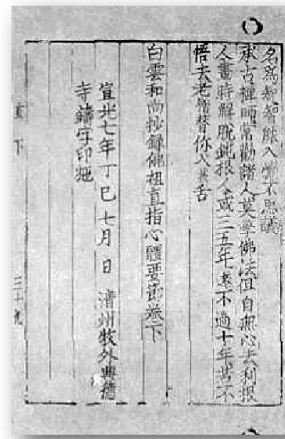 名為智能入不思議
承古禪師常勸諸人莫學佛法但自無心去利根
人晝時解脫鈍根人或三五年遠不過十年若不
悟去老僧替你入拔舌
白雲和尚抄錄佛祖直指心體要節卷下
宣光七年丁巳七月 日 清州牧外興德
寺鑄字印施
下
三十九